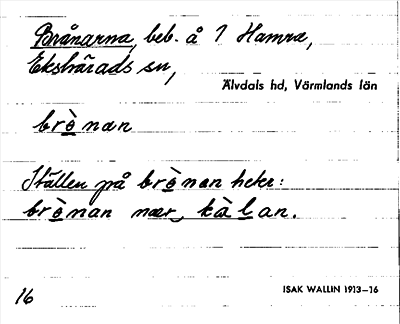 Brånarna, beb. å 1 Hamra,
Ekshärads sn,
Älvdals hd, Värmlands län
brònan
Ställen på brònan heter:
brònan nær, kàlan.
16
ISAK WALLIN 1913–16